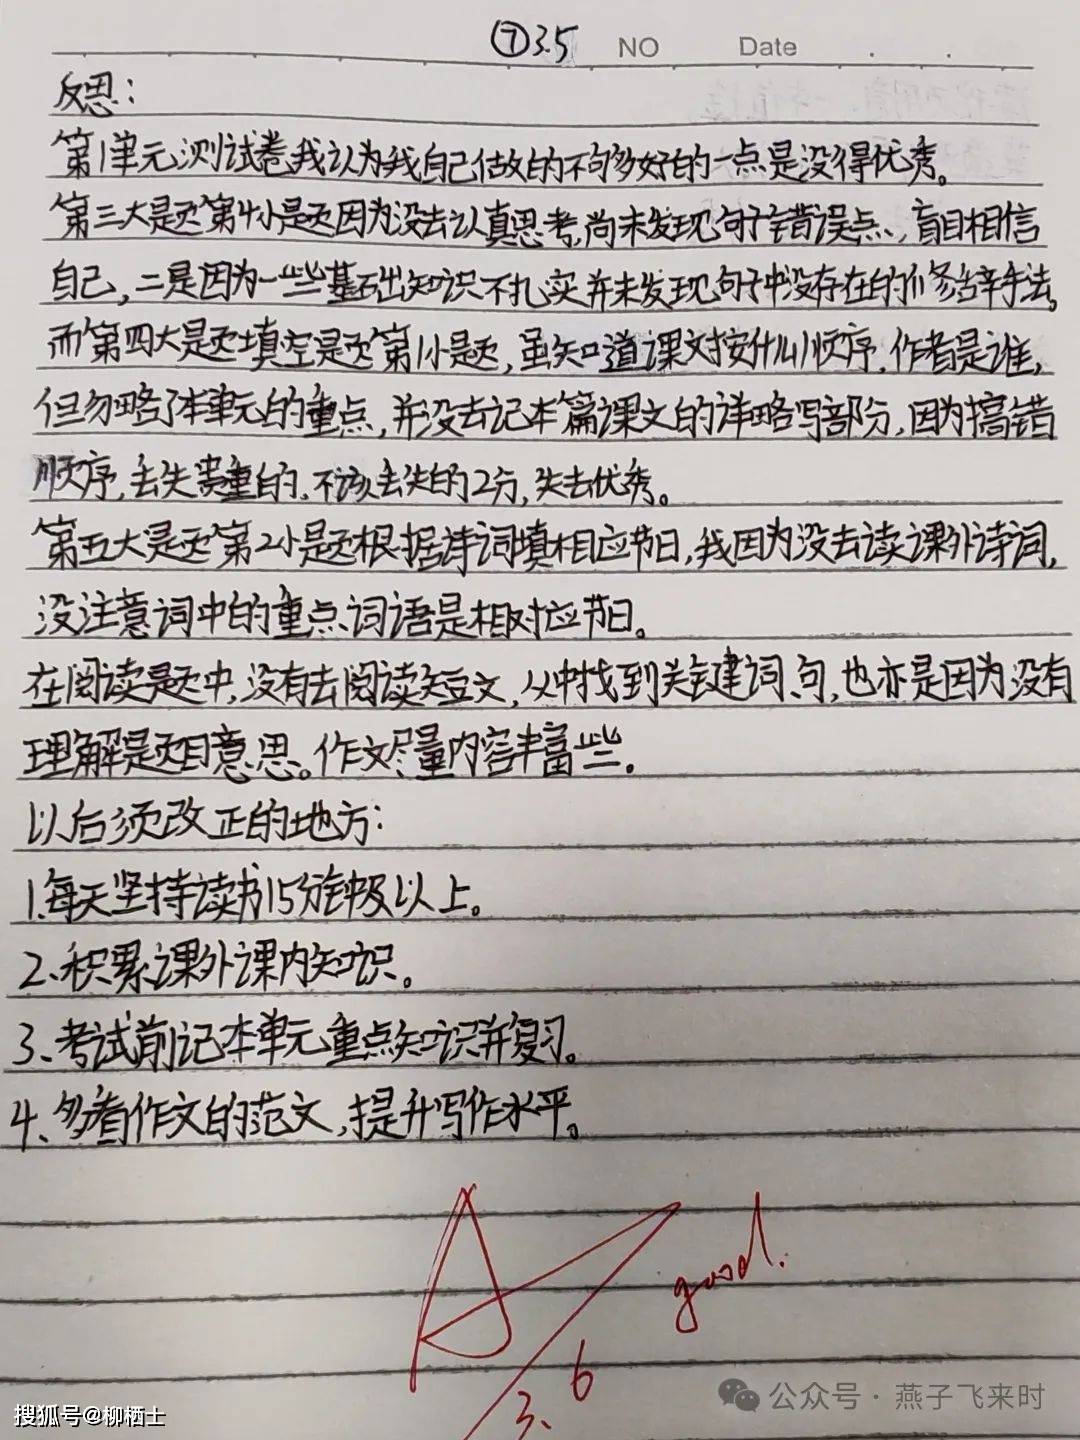 ⑦3.5 NO Date
反思：
第1单元测试卷，我认为我自己做的不够多好的一点是没得优秀。
第三大题第4小题因为没去认真思考，尚未发现句子错误点，盲目相信
自己，二是因为一些基础知识不扎实并未发现句子中没存在的修辞手法。
而第四大题填空题第1小题，虽知道课文按什么顺序，作者是谁，
但勿略了本单元的重点，并没去记本篇课文的详略写部分，因为搞错
顺序，丢失贵重的，不该丢失的2分，失去优秀。
第五大题第2小题根据诗词填相应节日，我因为没去读课外诗词，
没注意词中的重点词语是相对应节日。
在阅读题中，没有去阅读短文，从中找到关键词、句，也亦是因为没有
理解题目意思。作文尽量内容丰富些。
以后须改正的地方：
1.每天坚持读书15分钟及以上。
2、积累课外课内知识。
3、考试前记本单元重点知识并复习。
4、多看作文的范文，提升写作水平。
A
good.
3.6
公众号·燕子飞来时
搜狐号@柳栖士